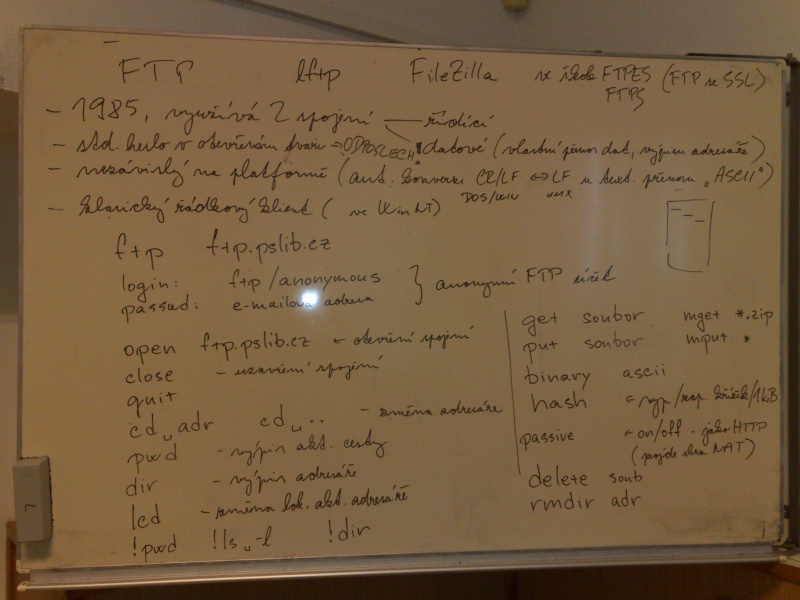 FTP lftp FileZilla ve škole FTPES (FTP se SSL)
FTPS
- 1985, využívá 2 spojení — řídící
- std. heslo v otevřeném tvaru → ODPOSLECH! datové (vlastní přenos dat, výpis adresáře)
- nezávislý na platformě (aut. konverze CR/LF ⇔ LF u text. přenosu „ASCII")
DOS/WIN UNIX
- klasický řádkový klient ( ve WinNT)
ftp ftp.pslib.cz
login: ftp/anonymous } anonymní FTP účet
passwd: e-mailová adresa
open ftp.pslib.cz ← otevření spojení
close - uzavření spojení
quit
cd␣adr cd␣.. - změna adresáře
pwd - výpis akt. cesty
dir - výpis adresáře
lcd - změna lok. akt. adresáře
!pwd !ls␣-l !dir
get soubor mget *.zip
put soubor mput *
binary ascii
hash ← vyp/zap. křížek/1KiB
passive ← on/off - jako HTTP
(projde skrz NAT)
delete soub
rmdir adr.